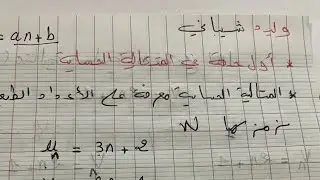 وليد شيباني
= an+b
* أول خاصة في المتتالية الحسابية
* المتتالية الحسابية معرفة على الأعداد الطبـ
نرمز لها N
u_n = 3n + 2